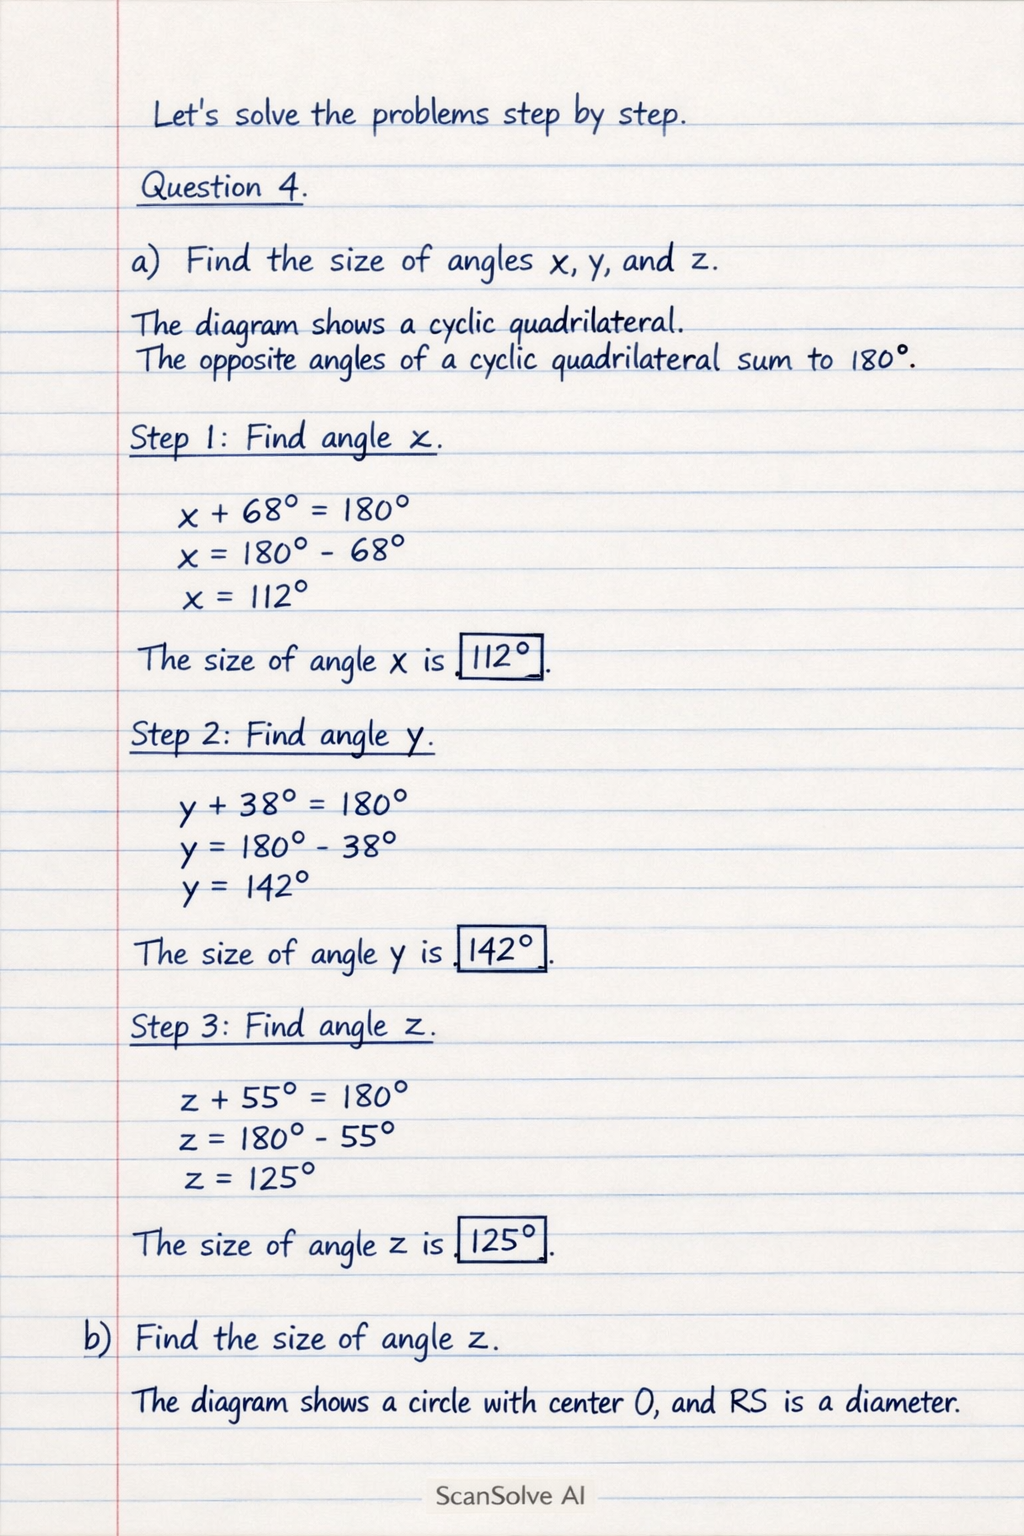 Let's solve the problems step by step.
Question 4.
a) Find the size of angles x, y, and z.
The diagram shows a cyclic quadrilateral.
The opposite angles of a cyclic quadrilateral sum to 180°.
Step 1: Find angle x.
x + 68° = 180°
x = 180° - 68°
x = 112°
The size of angle x is 112°.
Step 2: Find angle y.
y + 38° = 180°
y = 180° - 38°
y = 142°
The size of angle y is 142°.
Step 3: Find angle z.
z + 55° = 180°
z = 180° - 55°
z = 125°
The size of angle z is 125°.
b) Find the size of angle z.
The diagram shows a circle with center O, and RS is a diameter.
ScanSolve AI